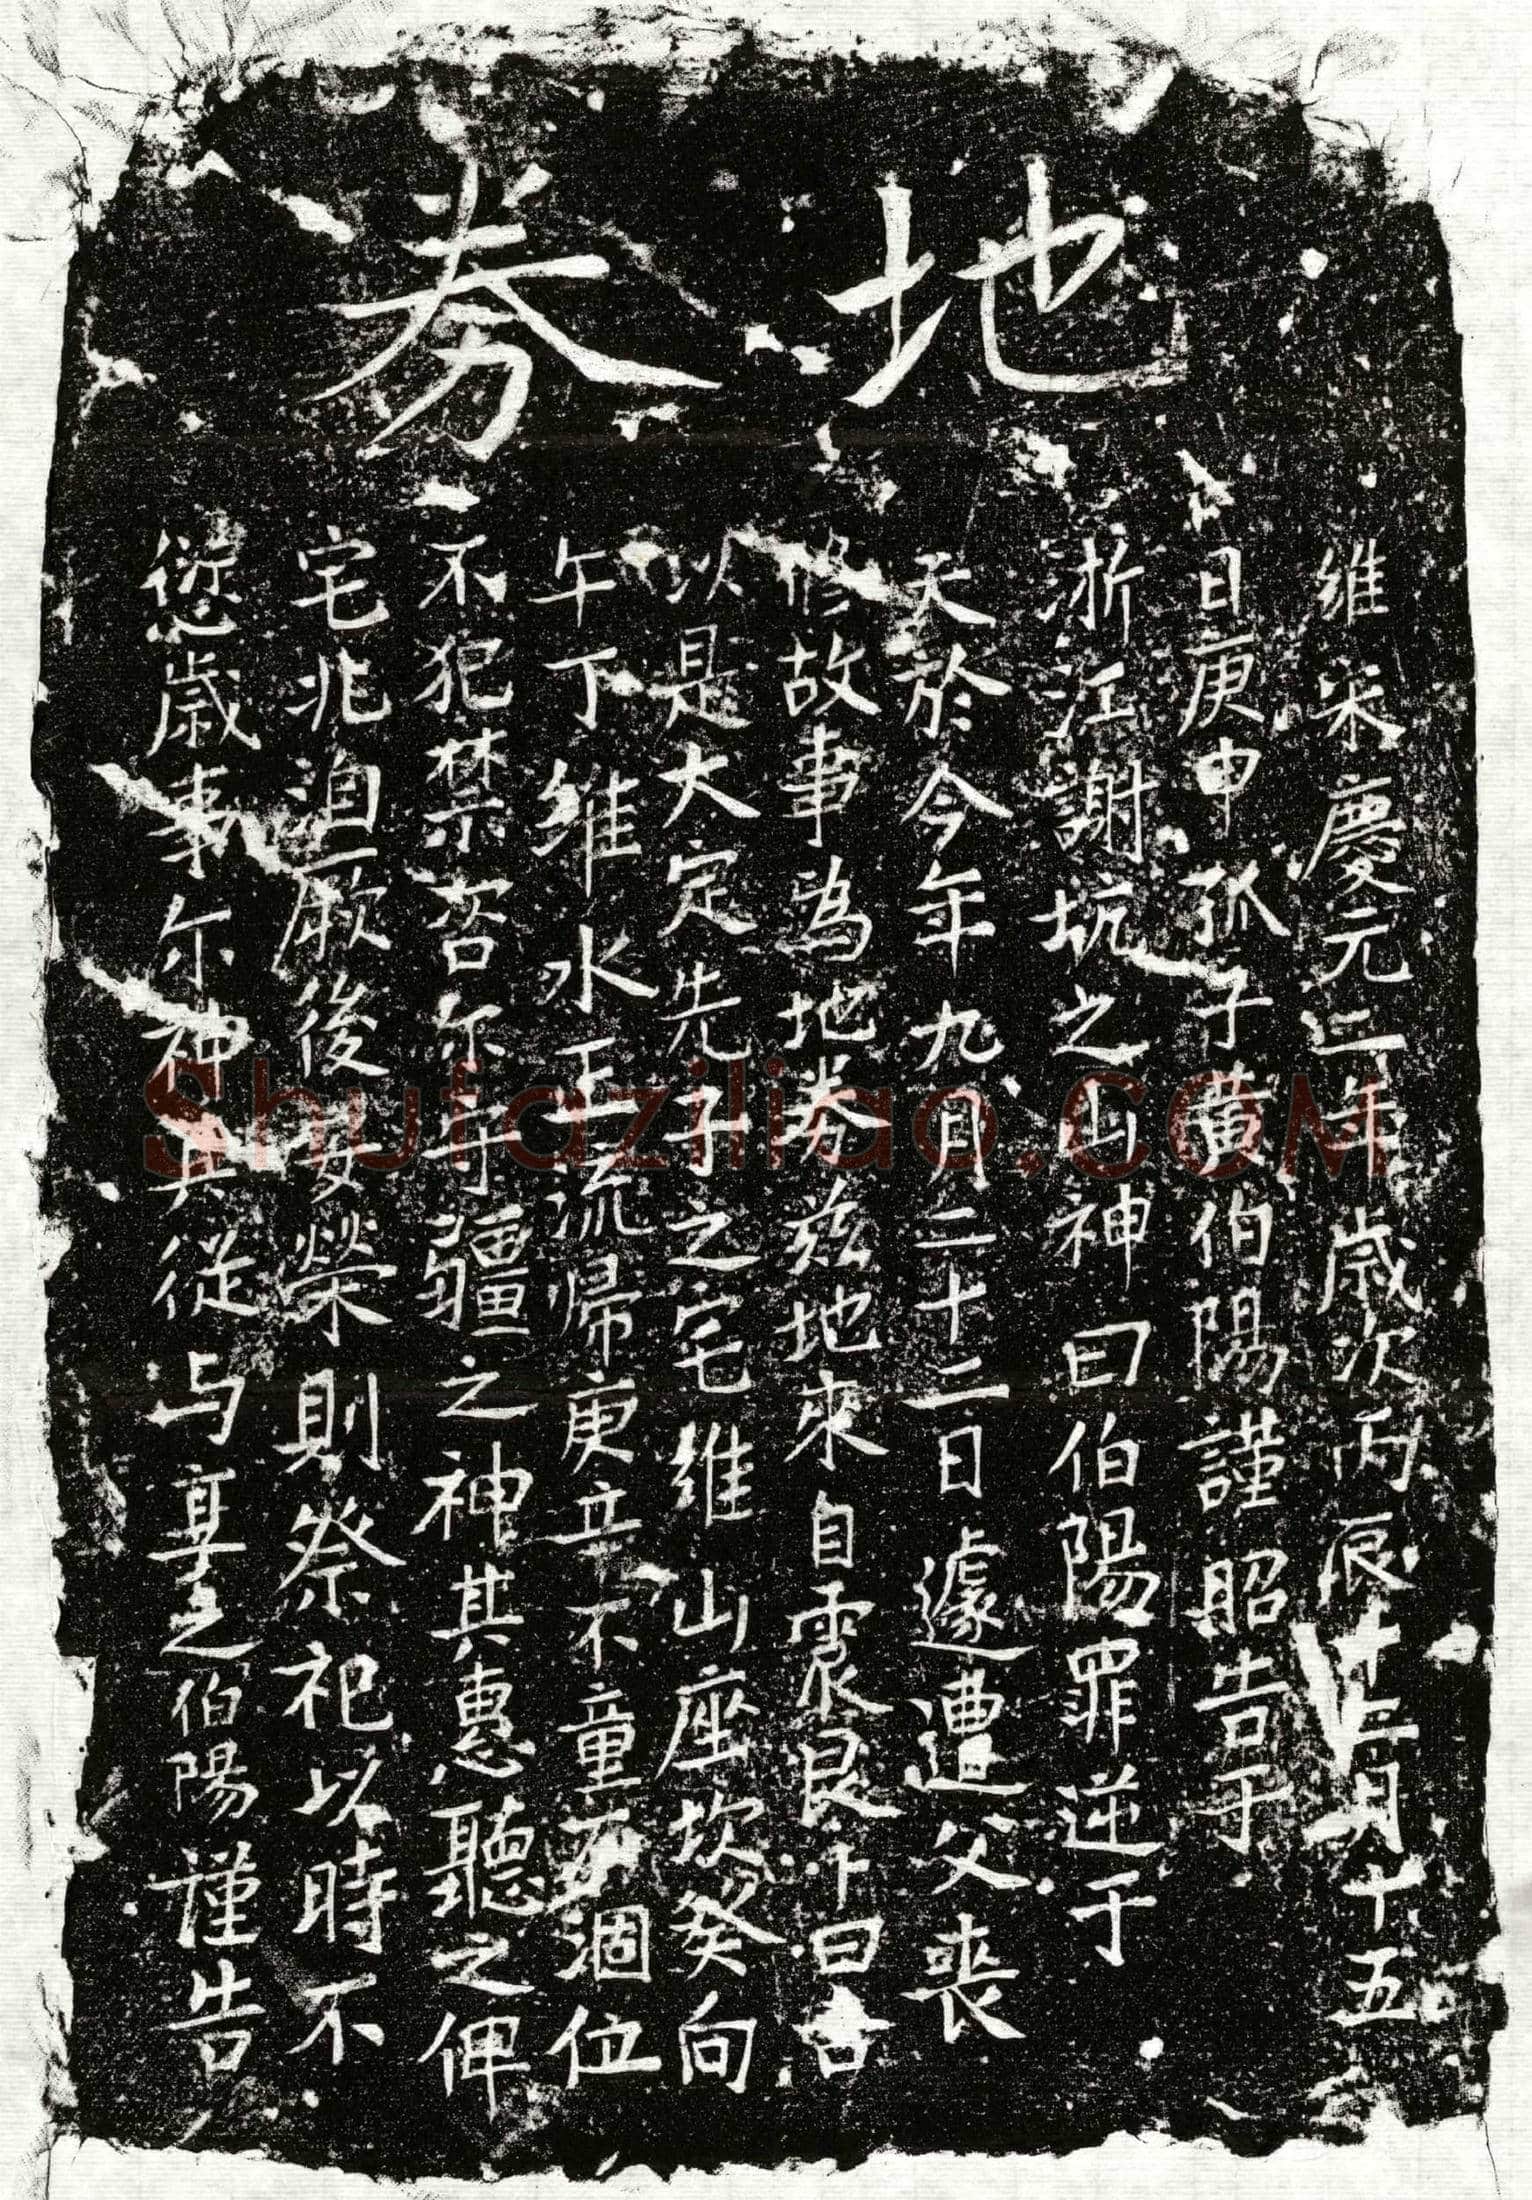 地券
維宋慶元二年歲次丙辰十二月十五
日庚申孤子黃伯陽謹昭告于
浙江謝坑之山神曰伯陽罪逆于
天於今年九月二十二日遽遭父喪
修故事為地券茲地來自震艮卜曰吉
以是大定先子之宅維山座坎癸向
午下維水玉流帰庚辛不童不涸位
不犯禁咨尔守疆之神其惠聽之俾
宅兆洎厥後安榮則祭祀以時不
愆歲事尔神其從与享之伯陽謹告
Shufaziliao.COM